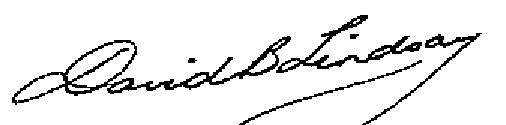 David B Lindsay